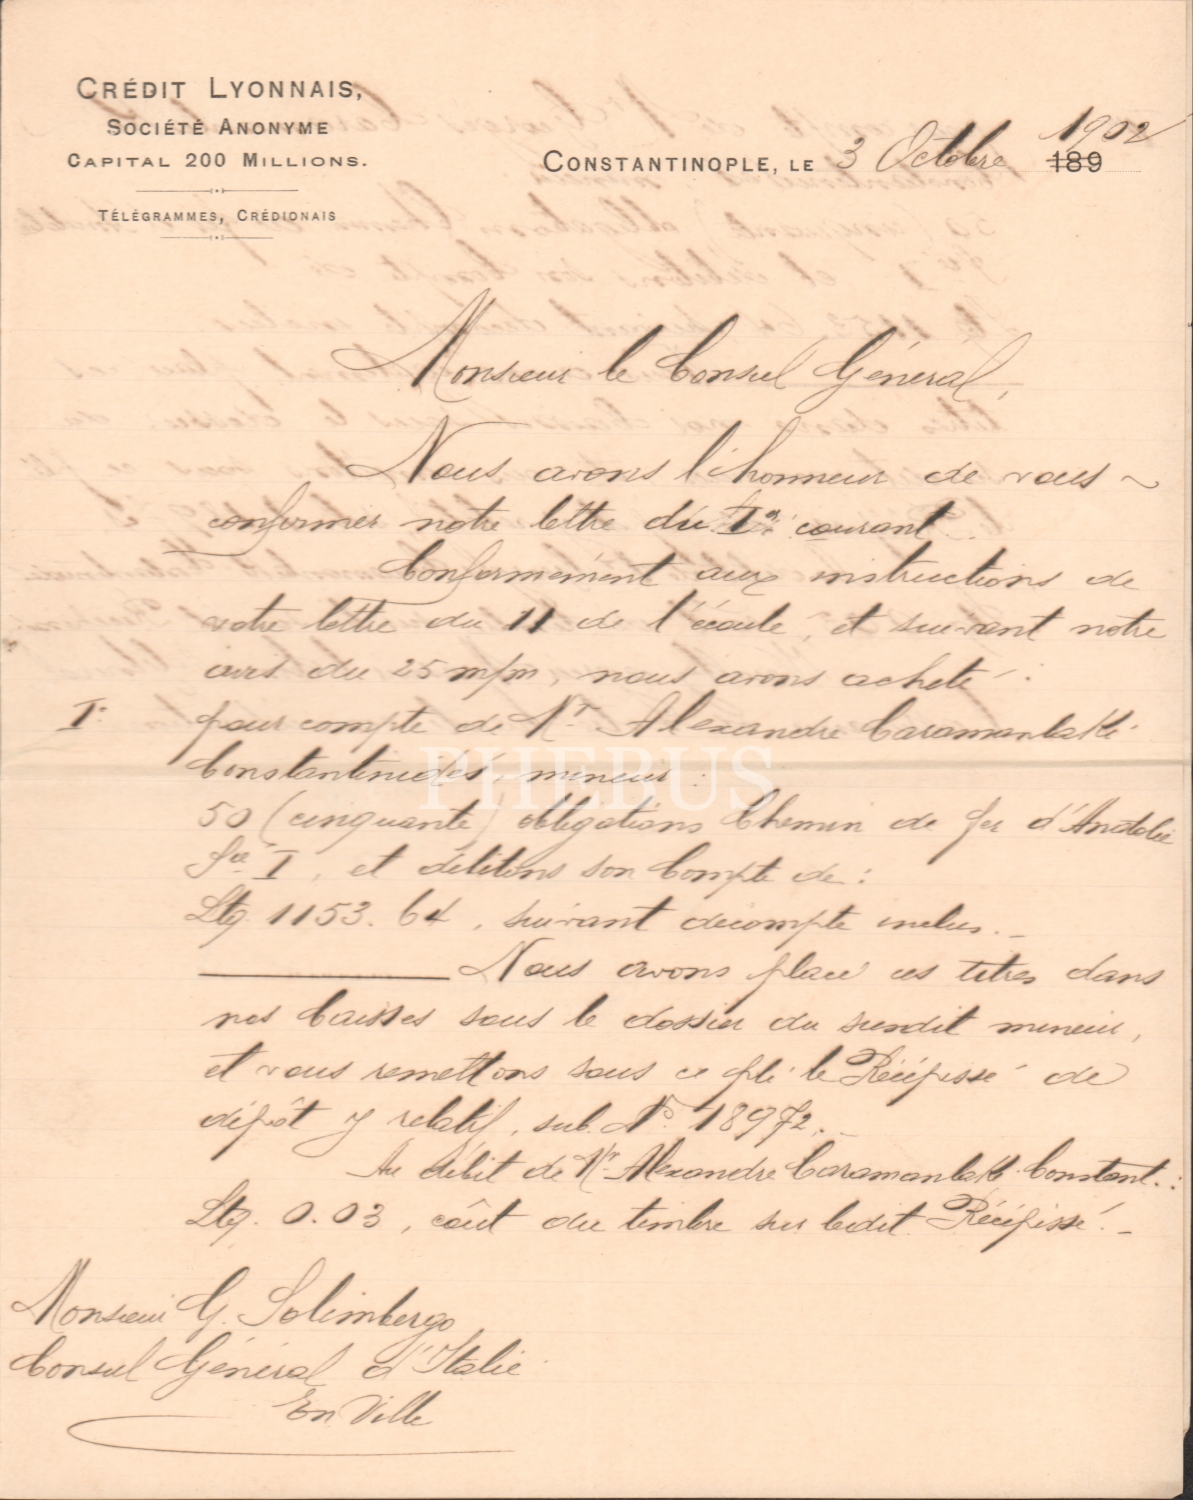 CRÉDIT LYONNAIS,
SOCIÉTÉ ANONYME
CAPITAL 200 MILLIONS.
TÉLÉGRAMMES, CRÉDIONAIS
CONSTANTINOPLE, LE 3 Octobre 189 1902
Monsieur le Consul Général,
Nous avons l'honneur de vous
confirmer notre lettre du 1er courant.
Conformément aux instructions de
votre lettre du 11 de l'écoulé, et suivant notre
avis du 25 m/m, nous avons acheté :
1° pour compte de Mr Alexandre Caramanlaki
Constantinidès, mineur :
50 (cinquante) obligations Chemin de fer d'Anatolie
Sie I, et débitons son Compte de :
Ltq. 1153.64, suivant décompte inclus. _
Nous avons placé ces titres dans
nos Caisses sous le dossier du susdit mineur,
et vous remettons sous ce pli le Récépissé de
dépôt y relatif, sub. No 18972. _
Au débit de Mr Alexandre Caramanlaki Constant. :
Ltq. 0.03, coût du timbre sur ledit Récépissé. _
Monsieur G. Solimbergo
Consul Général d'Italie
En Ville
PHEBUS